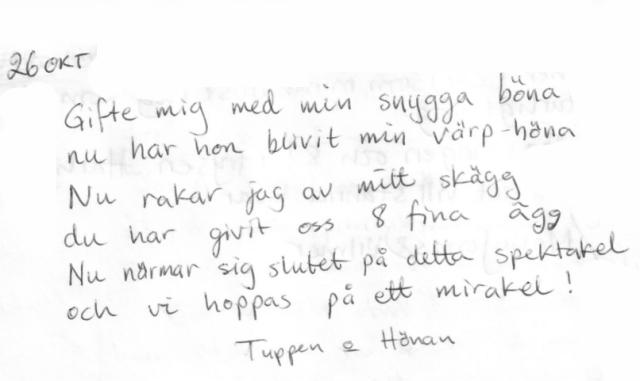 26 OKT
Gifte mig med min snygga böna
nu har hon blivit min värp-höna
Nu rakar jag av mitt skägg
du har givit oss 8 fina ägg
Nu närmar sig slutet på detta spektakel
och vi hoppas på ett mirakel!
Tuppen o Hönan